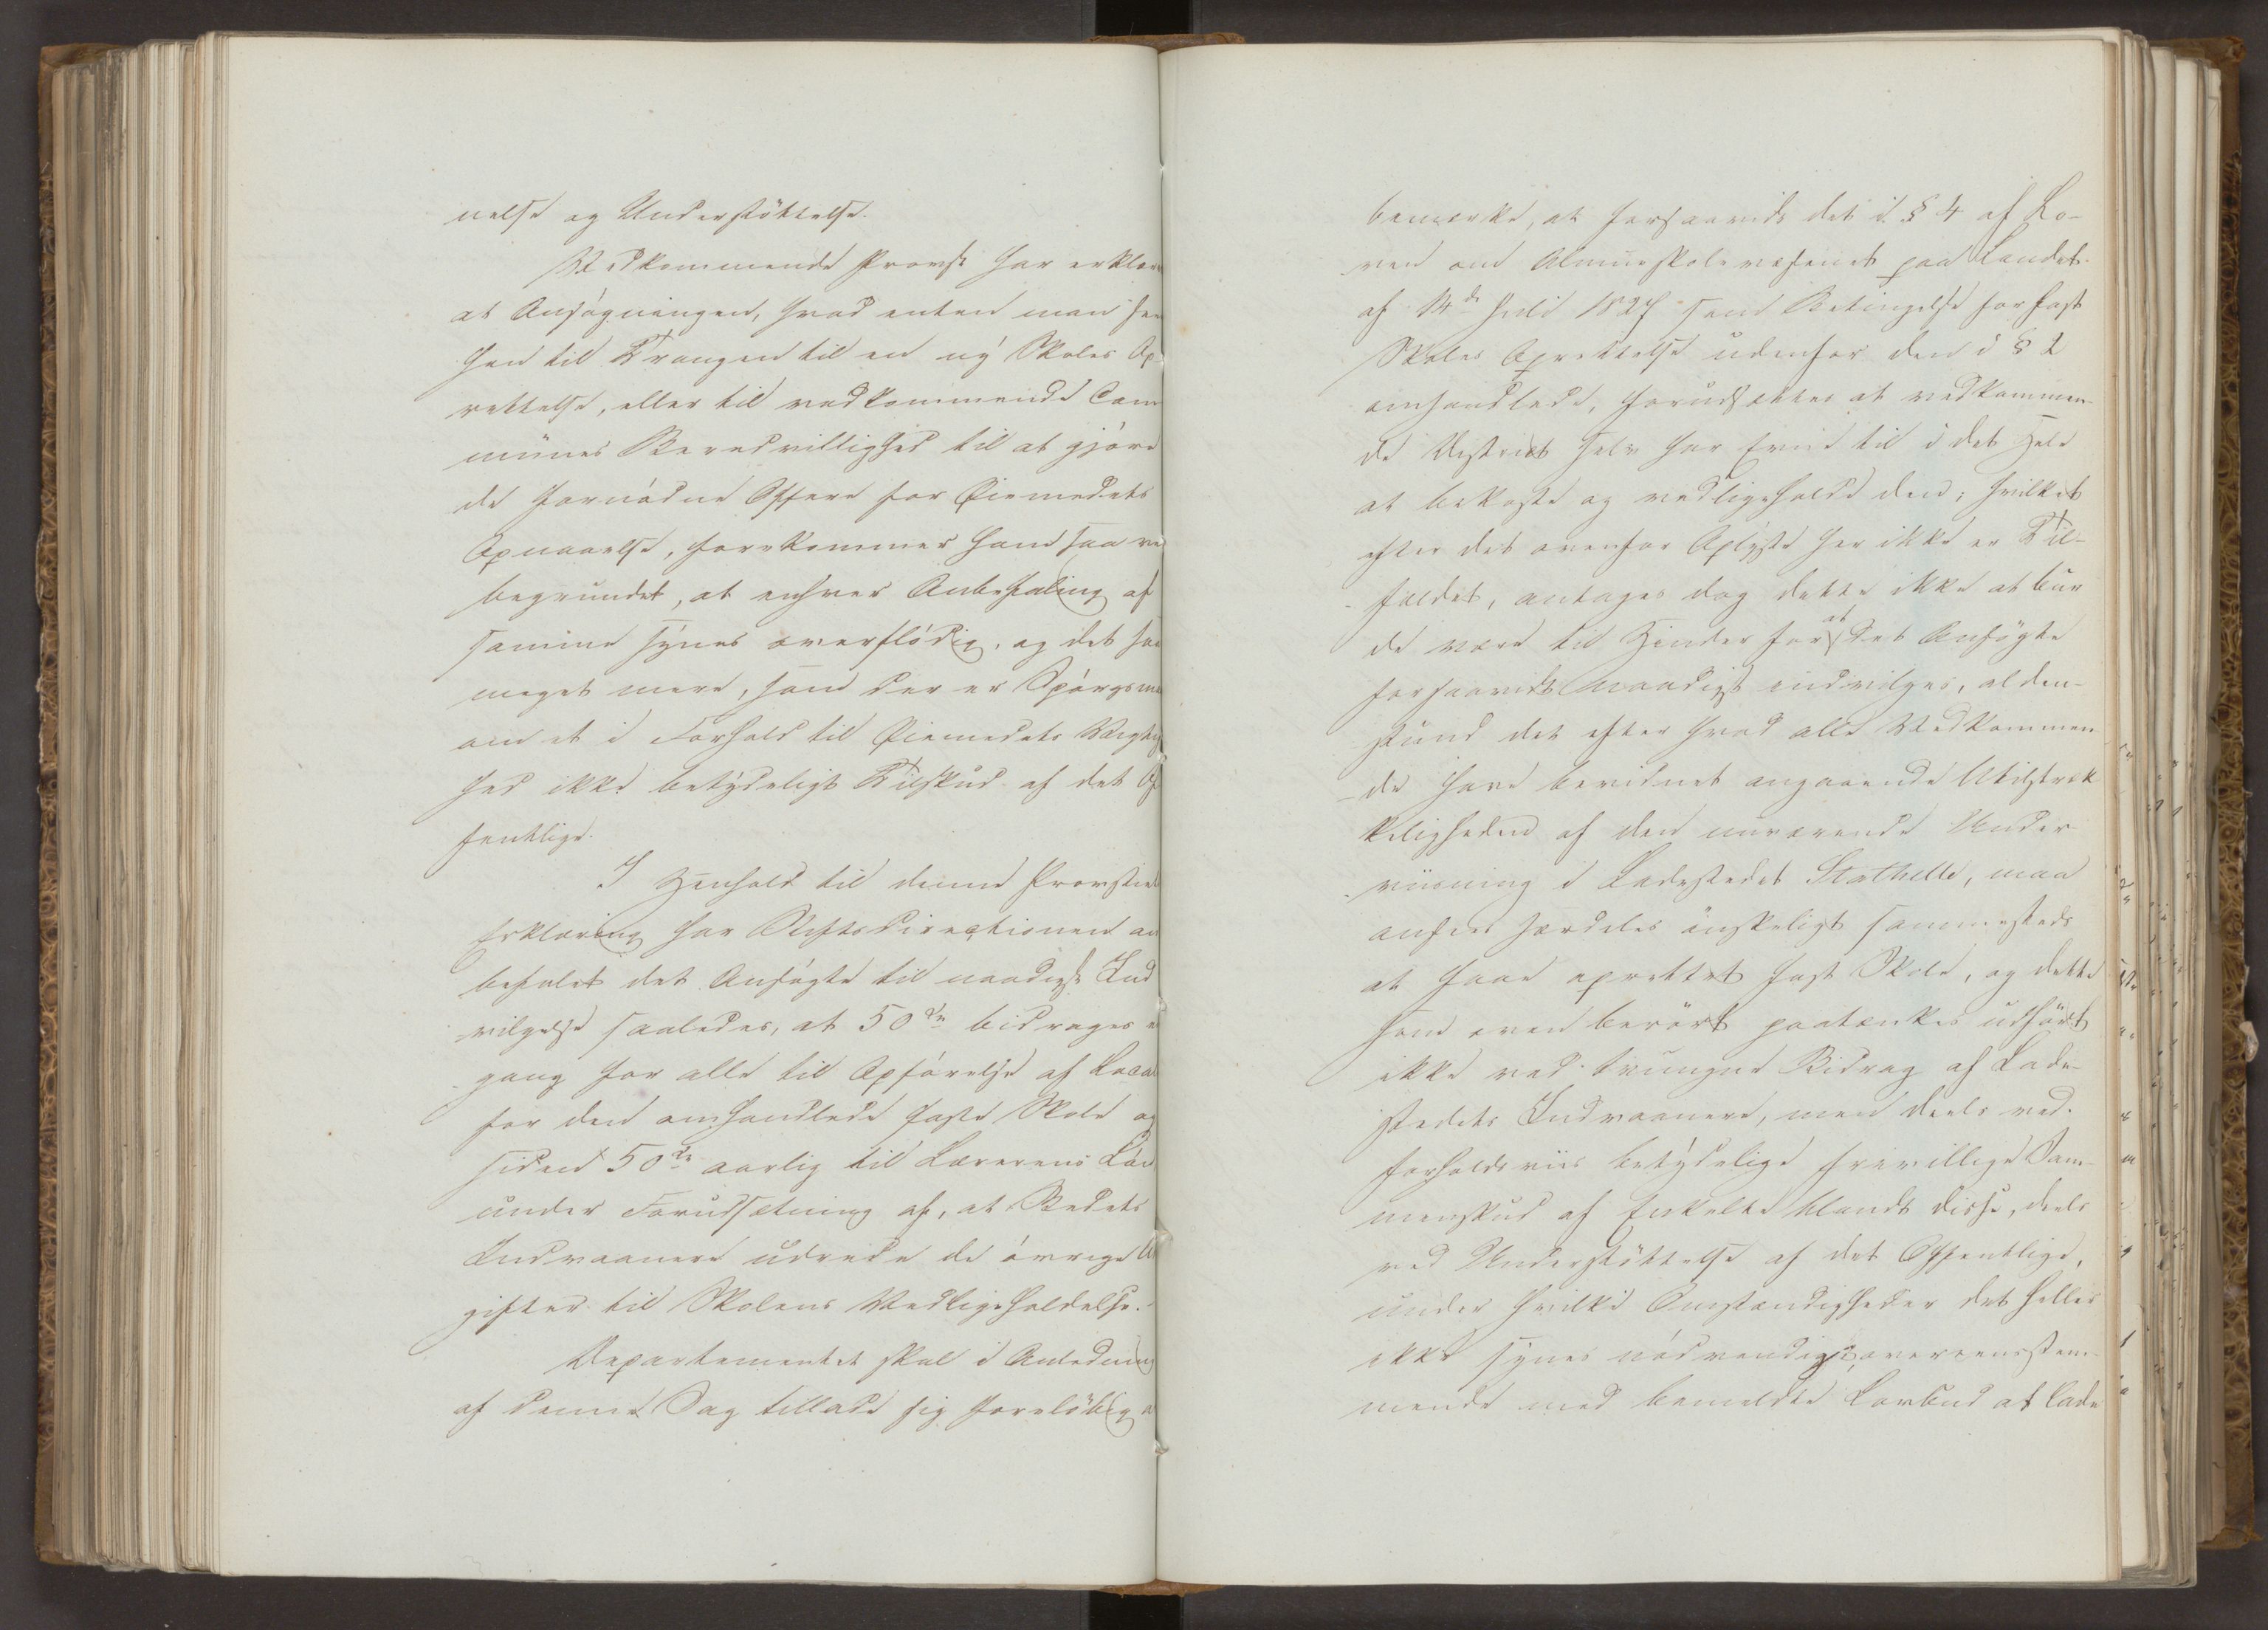 nelse og Understöttelse.
Vedkommende Provst har erklær
at Ansøgningen, hvad enten man see
hen til Trangen til en ny Skoles Op
rettelse, eller til vedkommende Com
münes Beredvillighed til at gjöre
de fornödne Offere for Øiemedets
Opnaaelse, forekommer ham saa ve
begrundet, at enhver Anbefaling af
samme synes overflödig, og det saa
meget mere, som der er Spörgsma
om et i Forhold til Øiemedets Vigtig
hed ikke betydeligt Tilskud af det Of
fentlige.
I Henhold til denne Provstens
Erklæring har Stiftsdirectionen an
befalet det Ansögte til naadigst Ind
vilgelse saaledes, at 50 Sp bidrages e
gang for alle til Opförelse af Local
for den omhandlede faste Skole og
siden 50 Sp aarlig til Lærerens Lön
under Forudsætning af, at Stedets
Indvaanere udrede de övrige U
gifter til Skolens Vedligeholdelse.
Departementet skal i Anledning
af denne Sag tillade sig foreløbig a
bemærke, at forsaavidt det i § 4 af Lo-
ven om Almueskolevæsenet paa Landet
af 14de Juli 1827 som Betingelse for fast
Skoles Oprettelse udenfor den i § 2
omhandlede, forudsættes at vedkommen-
de District selv har Evne til i det Hele
at bekoste og vedligeholde den; hvilket
efter det ovenfor Oplyste her ikke er Til-
fældet, antages dog dette ikke at bur
de være til Hinder for at det Ansögte
forsaavidt naadigst indvilges, alden-
stund det efter hvad alle Vedkommen
de have bevidnet angaaende Utilstræk
keligheden af den nuværende Under
viisning i Ladestedet Stathelle, maa
ansees særdeles önskeligt sammesteds
at faae oprettet fast Skole, og dette
som oven berört paatænkes udfört
ikke ved tvungne Bidrag af Lade-
stedets Indvaanere, men deels ved
forholdsviis betydelige frivillige Sam-
menskud af Enkelte blandt disse, deels
ved Understöttelse af det Offentlige,
under hvilke Omstændigheder det heller
ikke synes nödvendigt, overeensstem-
mende med bemeldte Lovbud at lade